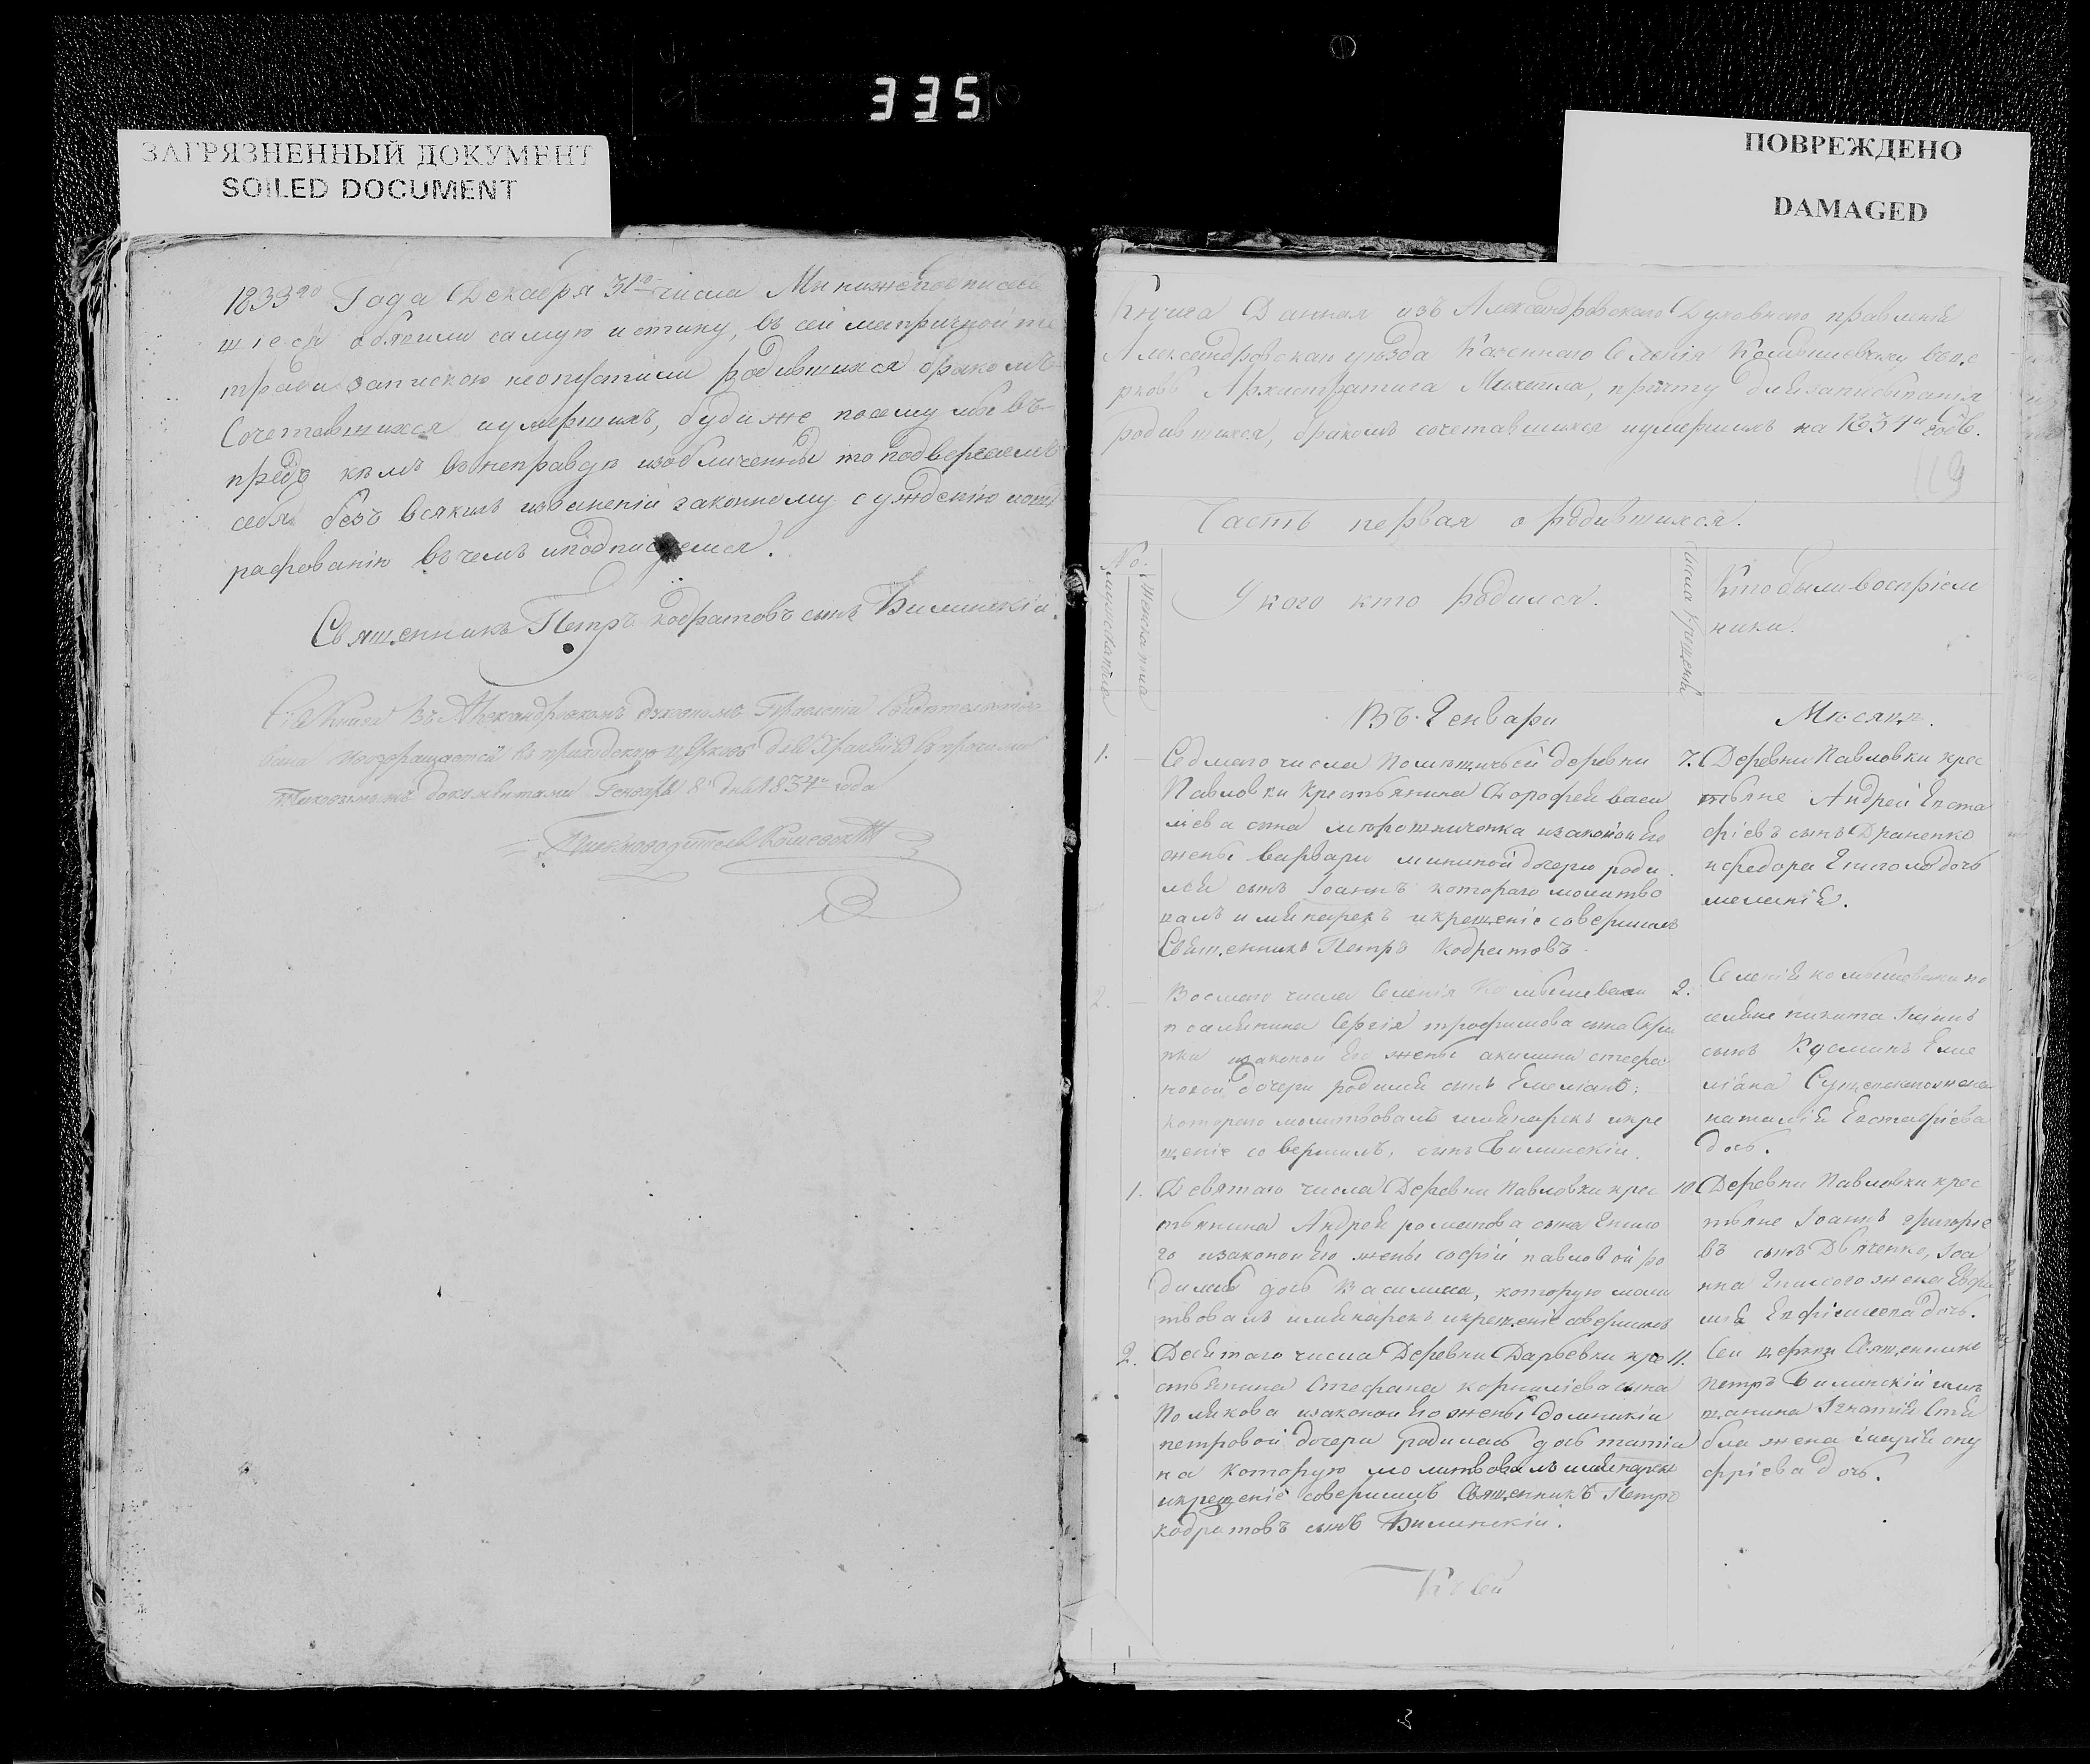 335
ЗАГРЯЗНЕННЫЙ ДОКУМЕНТ
SOILED DOCUMENT
ПОВРЕЖДЕНО
DAMAGED
1833го Года Декабря 31го числа Мы нижеподписав
шіеся объявили самую истину, въ сей метричной те
тради запискою неопустили родившихся бракомъ
Сочетавшихся иумершихъ, буди же посему мы въ
предъ кемъ внеправде изобличенны то подвергаемъ
себя безъ всякихъ извиненій законному суждению ишт
рафованію вчемъ иподписуемся.
Священникъ Петръ кодратовъ сынъ Билинскій
Сія Книга Въ Александровскомъ духовномъ Правленіи Свидетельство
вана возвращается въ приходскую церковь для Храненія спрочими
таковымижъ документами Генваря 8 дня 1834 года
Книга Данная изъ Александровскаго Духовнаго правленія
Александровскаго уезда Казеннаго Селенія Комышевахи въ це
рковь Архистратига Михаила, причту для записыванія
родившихся, бракомъ сочетавшихся иумершихъ на 1834й годъ.
119
Часть первая о родившихся.
No.
мужеска пола
женска пола
У кого кто родился.
числа крещенія
Кто были воспріем
ники.
Въ Генвари
Месяце.
1.
Седмаго числа Помещичьей деревни
Павловки Крестьянина Дорофея васи
лієва сына изаконой Его
жены варвары мининой дочери роди
лся сынъ Іоаннъ котораго молитво
валъ имя нарекъ икрещеніе совершилъ
Священникъ Петръ Кодратовъ
7. Деревни Павловки крес
тьяне Андрей Евста
фіевъ сынъ Драненко
ифедора дочь
2.
Восмаго числа Селенія Комышевахи
поселянина Сергія трофимова сына Скри
пки изаконой Его жены акилины стефа
новой дочери родился сынъ Емеліанъ;
котораго молитвовалъ имя нарекъ икре
щеніе совершилъ, сынъ Билинскій.
2.
Селенія комышевахи по
селяне никита
сынъ Кузминъ Еме
ліана жена
наталія Евстафіева
дочь.
1.
Девятаго числа Деревни Павловки крес
тьянина Андрея романова сына
го изаконой Его жены софіи павловой ро
дилась дочь Василиса, которую моли
твовалъ имя нарекъ икрещеніе совершилъ
10. Деревни Павловки крес
тьяне Іоаннъ григоріе
въ сынъ Дяченко, Іоа
нна жена
дочь.
2.
Десятаго числа Деревни Дарьевки кре
стьянина Стефана корниліева сына
Полякова изаконой Его жены домникіи
петровой дочери родилась дочь татіа
на которую молитвовалъ имя нарекъ
икрещеніе совершилъ Священникъ Петръ
кодратовъ сынъ Билинскій.
11. Сей церкви Священникъ
петръ Билинскій имъ
щанина Игнатія
жена марія ону
фріева дочь.